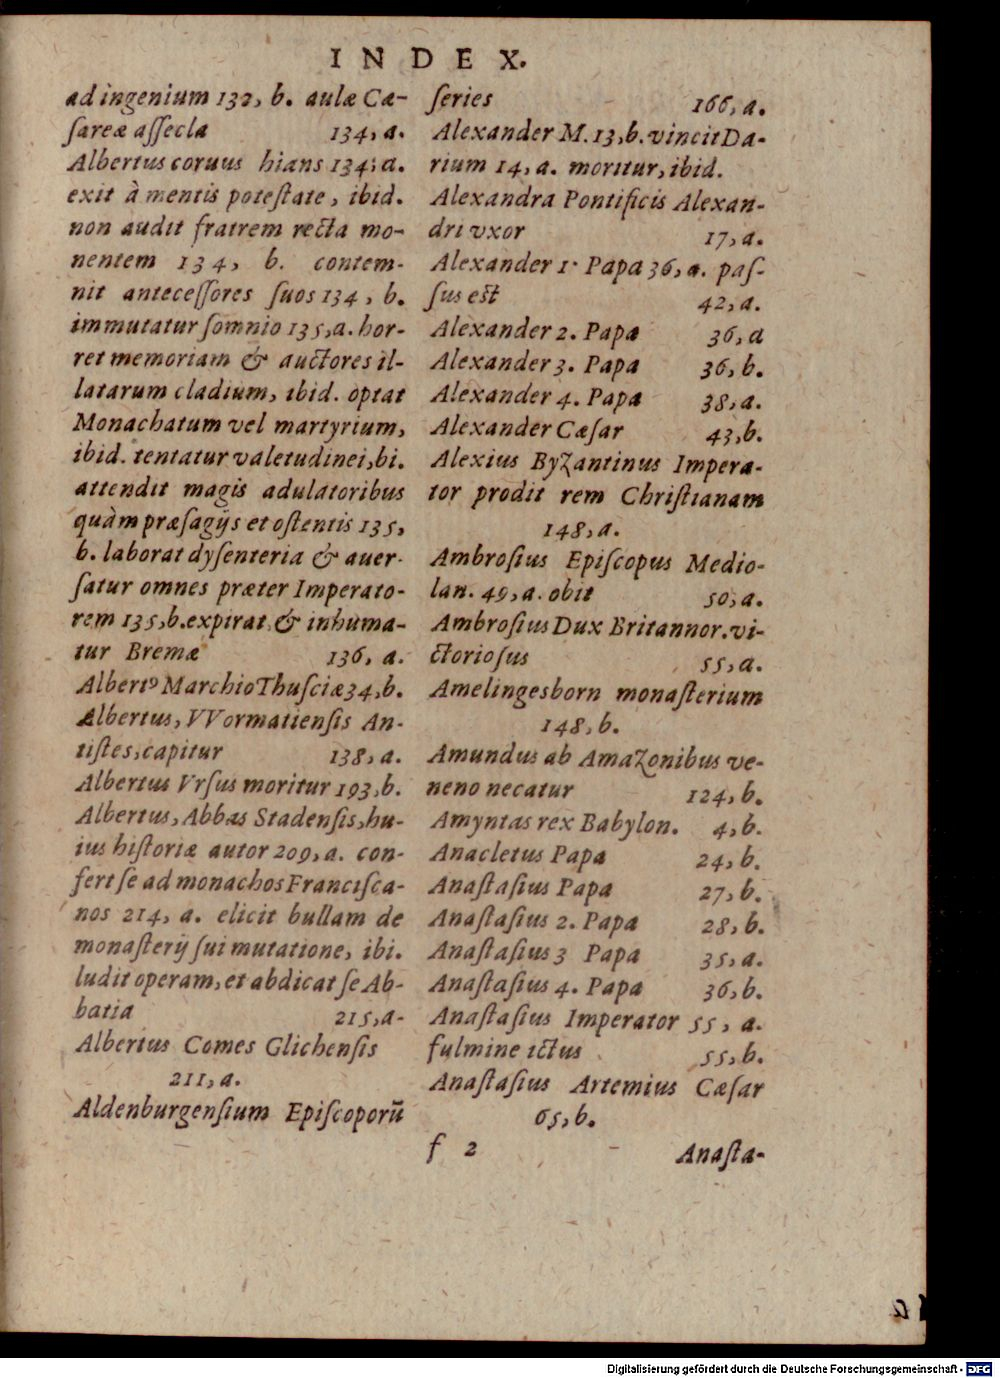 INDEX.
ad ingenium 132, b. aulæ Cæ-
ſareæ aſſecla 134, a.
Albertus coruus hians 134, a.
exit à mentis poteſtate, ibid.
non audit fratrem recta mo-
nentem 134, b. contem-
nit anteceſſores ſuos 134, b.
immutatur ſomnio 135, a. hor-
ret memoriam & auctores il-
latarum cladium, ibid. optat
Monachatum vel martyrium,
ibid. tentatur valetudinei, bi.
attendit magis adulatoribus
quàm præſagijs et oſtentis 135,
b. laborat dyſenteria & auer-
ſatur omnes præter Imperato-
rem 135, b. expirat & inhuma-
tur Bremæ 136, a.
Albertꝰ Marchio Thuſciæ 34, b.
Albertus, VVormatienſis An-
tiſtes, capitur 138, a.
Albertus Vrſus moritur 193, b.
Albertus, Abbas Stadenſis, hu-
ius hiſtoriæ autor 209, a. con-
fert ſe ad monachos Franciſca-
nos 214, a. elicit bullam de
monaſterij ſui mutatione, ibi.
ludit operam, et abdicat ſe Ab-
batia 215, a-
Albertus Comes Glichenſis
211, a.
Aldenburgenſium Epiſcoporū
ſeries 166, a.
Alexander M. 13, b. vincit Da-
rium 14, a. moritur, ibid.
Alexandra Pontificis Alexan-
dri vxor 17, a.
Alexander 1. Papa 36, a. paſ-
ſus est 42, a.
Alexander 2. Papa 36, a
Alexander 3. Papa 36, b.
Alexander 4. Papa 38, a.
Alexander Cæſar 43, b.
Alexius Byzantinus Impera-
tor prodit rem Chriſtianam
148, a.
Ambroſius Epiſcopus Medio-
lan. 49, a. obit 50, a.
Ambroſius Dux Britannor. vi-
ctorioſus 55, a.
Amelingesborn monaſterium
148, b.
Amundus ab Amazonibus ve-
neno necatur 124, b.
Amyntas rex Babylon. 4, b.
Anacletus Papa 24, b.
Anaſtaſius Papa 27, b.
Anaſtaſius 2. Papa 28, b.
Anaſtaſius 3 Papa 35, a.
Anaſtaſius 4. Papa 36, b.
Anaſtaſius Imperator 55, a.
fulmine ictus 55, b.
Anaſtaſius Artemius Cæſar
65, b.
f 2 Anaſta-
Digitalisierung gefördert durch die Deutsche Forschungsgemeinschaft - DFG